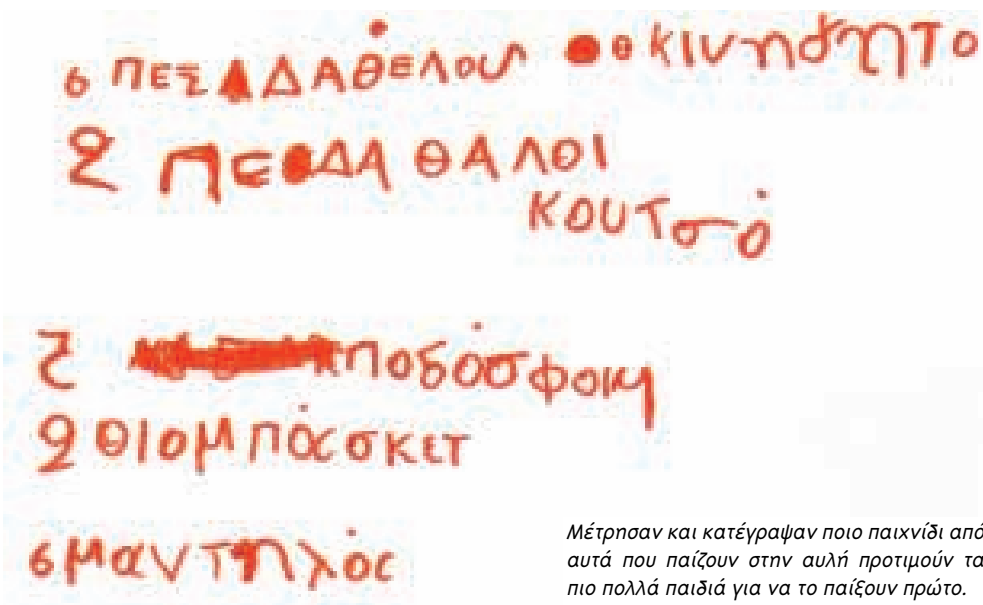 6 ΠΕΣ ΔΑΘΕΛΟυν κιν
2 ΠΕ ΔΑ ΘΑ ΛΟΙ
ΚΟυΤσό
2
2 ΘΙΟ ΜΠάσκετ
6 μαντηλός
Μέτρησαν και κατέγραψαν ποιο παιχνίδι από
αυτά που παίζουν στην αυλή προτιμούν τα
πιο πολλά παιδιά για να το παίξουν πρώτο.